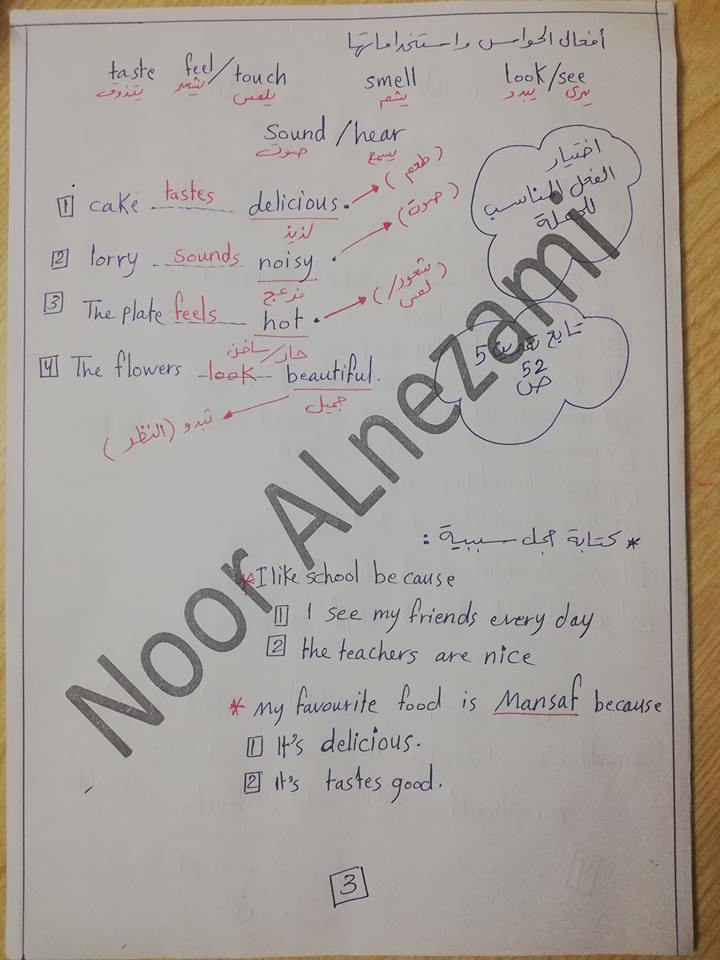 أفعال الحواس واستخداماتها
taste feel/touch smell look/see
يتذوق يشعر يلمس يشم يبدو يرى
Sound/hear
صوت يسمع
اختيار
الفعل المناسب
للجملة
1 cake tastes delicious. (طعم)
لذيذ
2 lorry sounds noisy. (صوت)
مزعج
3 The plate feels hot. (شعور/لمس)
حار/ساخن
4 The flowers look beautiful.
جميل
تبدو (النظر)
تابع تمرين 5
52
ص
* كتابة جمل سببية :
* I like school because
1 I see my friends every day
2 the teachers are nice
* My favourite food is Mansaf because
1 It's delicious.
2 It's tastes good.
3
Noor ALnezami